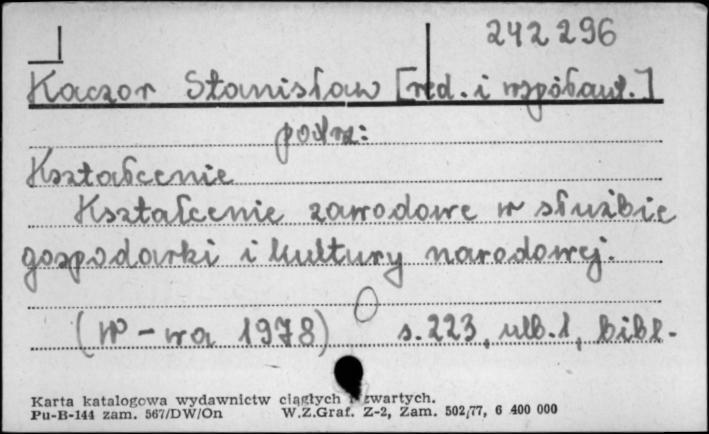 242 296
Kaczor Stanisław [red. i współaut.]
patrz:
Kształcenie
Kształcenie zawodowe w służbie
gospodarki i kultury narodowej.
(W-wa 1978) s. 223, nlb. 1, bibl.
Karta katalogowa wydawnictw ciągłych i zwartych.
Pu-B-144 zam. 567/DW/On W.Z.Graf. Z-2, Zam. 502/77, 6 400 000